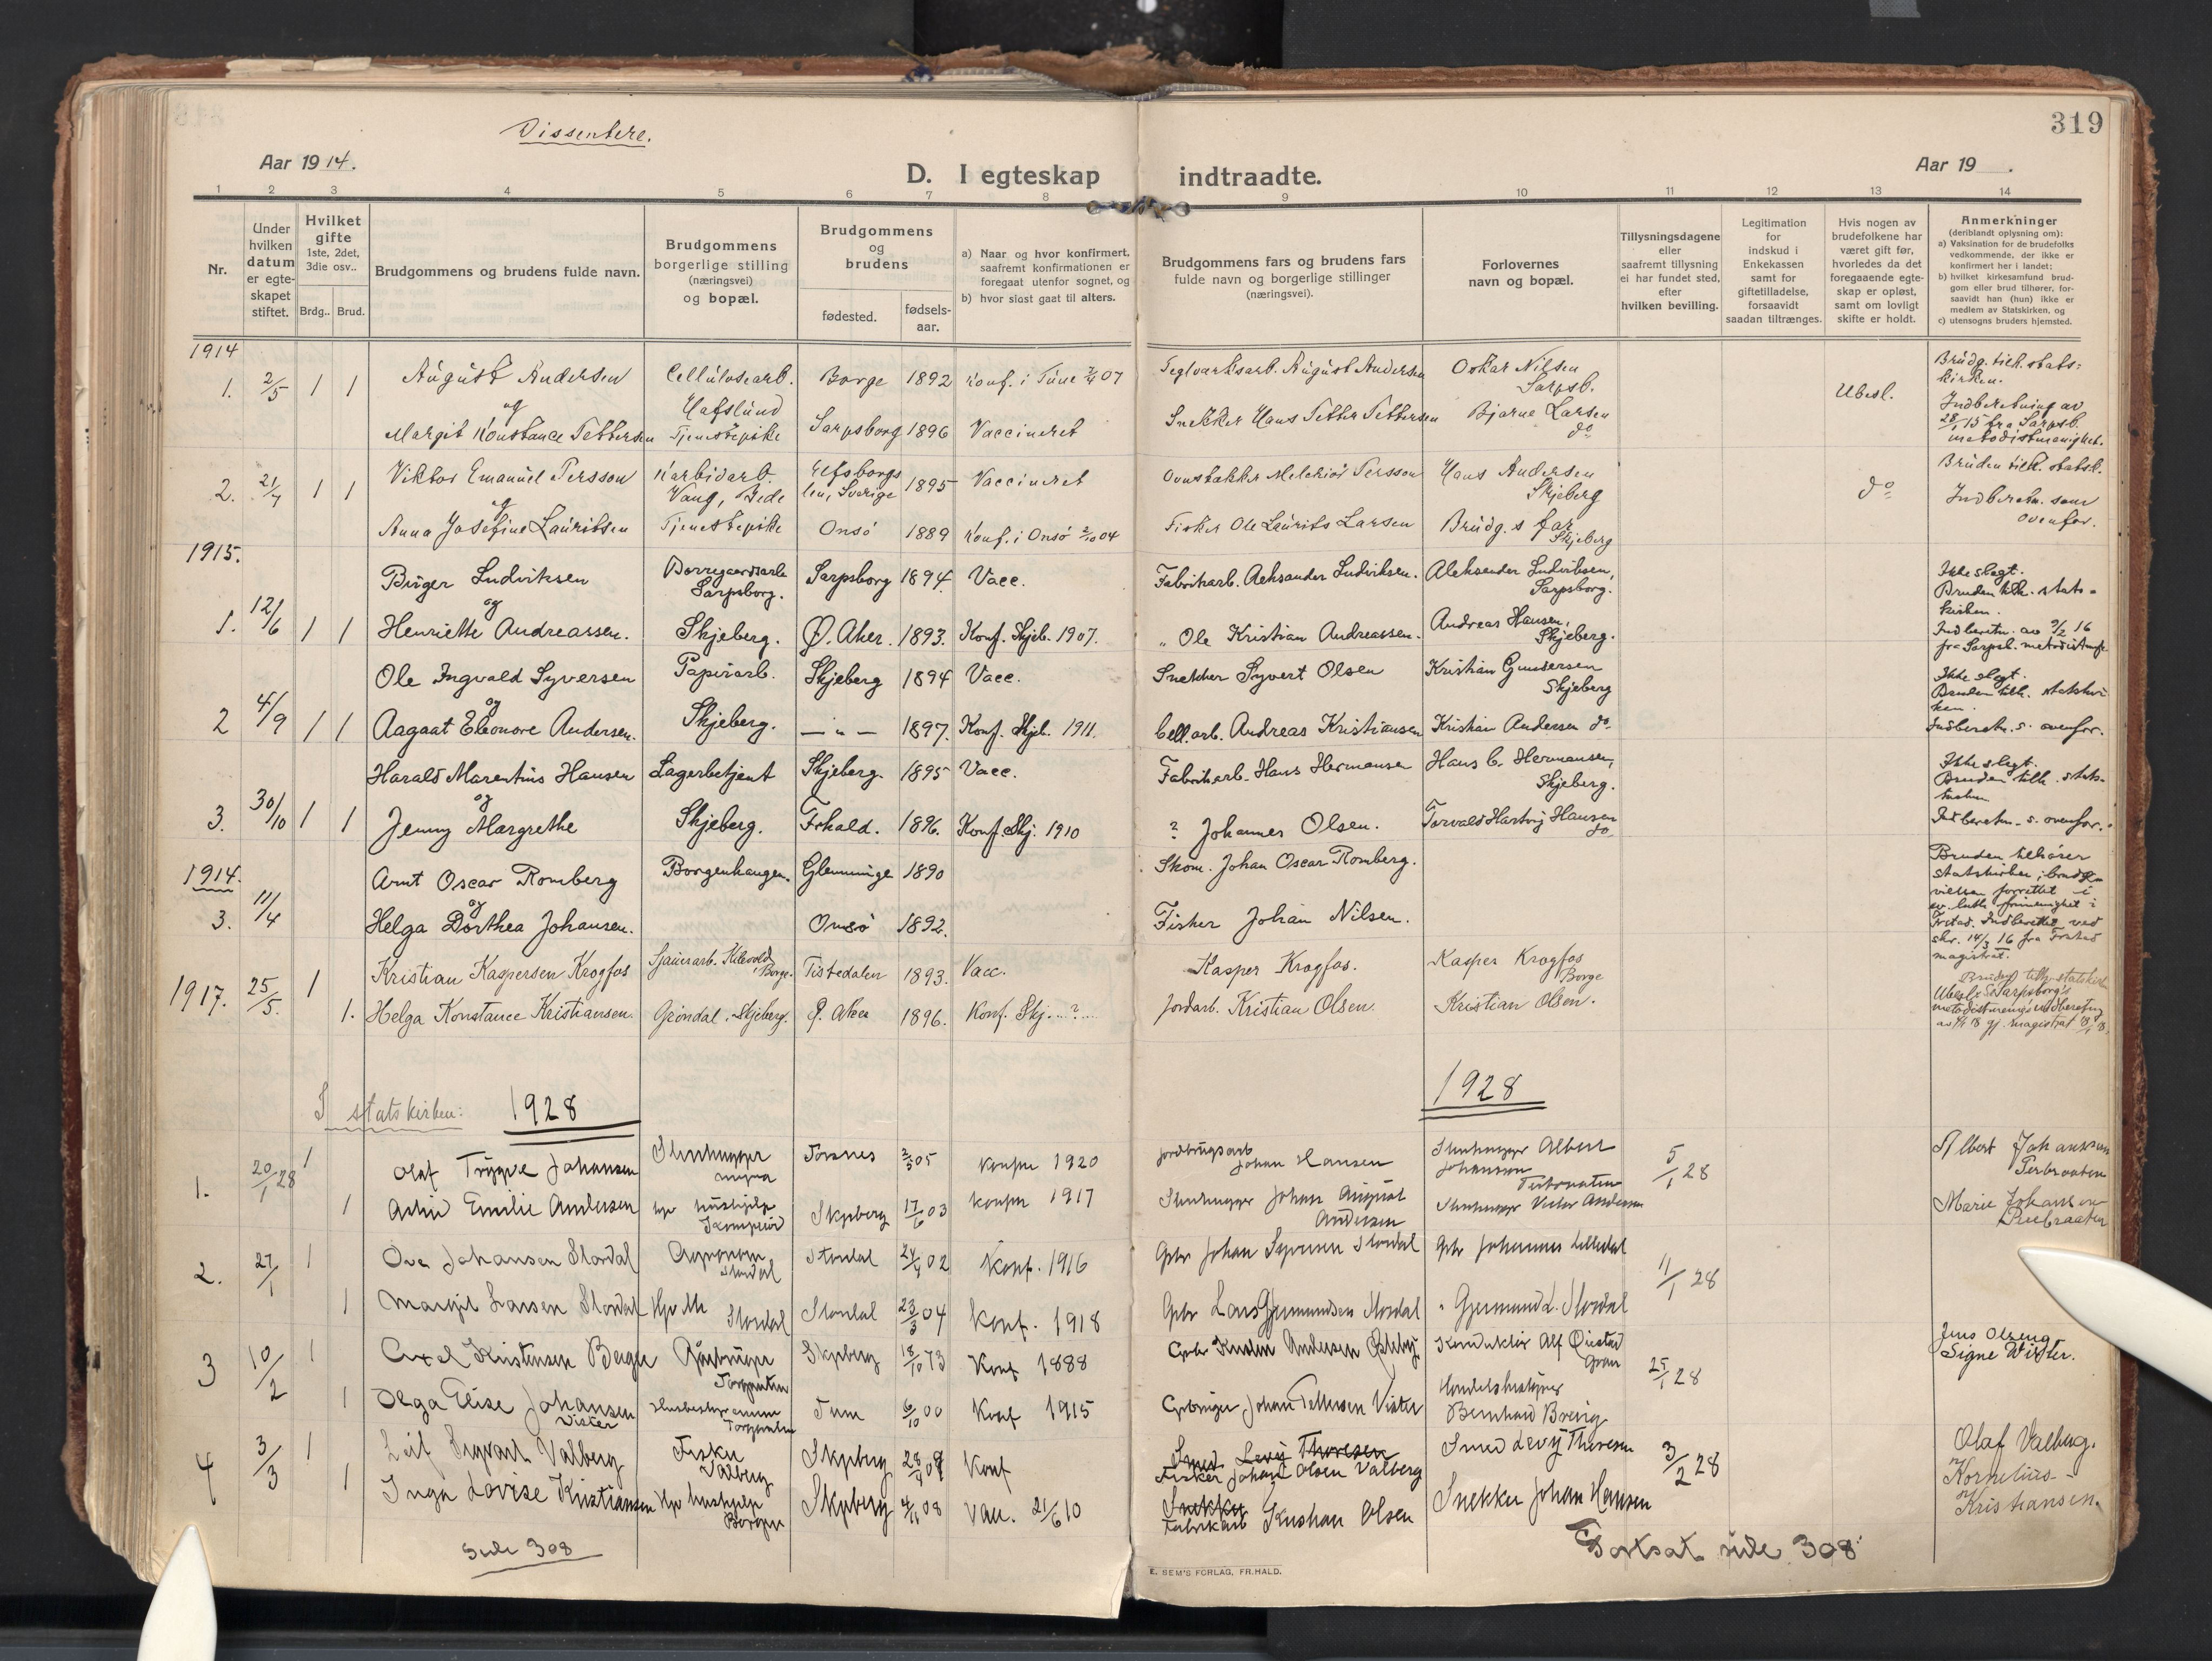 319
Dissentere.
Aar 1914.
D. I egteskap indtraadte.
Aar 19 .
1 2 3 4 5 6 7 8 9 10 11 12 13 14
Nr.
Under hvilken datum er egte-skapet stiftet.
Hvilket gifte 1ste, 2det, 3die osv..
Brdg.. Brud.
Brudgommens og brudens fulde navn.
Brudgommens borgerlige stilling (næringsvei) og bopæl.
Brudgommens og brudens
fødested.
fødsels-aar.
a) Naar og hvor konfirmert, saafremt konfirmationen er foregaat utenfor sognet, og
b) hvor sidst gaat til alters.
Brudgommens fars og brudens fars fulde navn og borgerlige stillinger (næringsvei).
Forlovernes navn og bopæl.
Tillysningsdagene eller saafremt tillysning ei har fundet sted, efter hvilken bevilling.
Legitimation for indskud i Enkekassen samt for giftetilladelse, forsaavidt saadan tiltrænges.
Hvis nogen av brudefolkene har været gift før, hvorledes da det foregaaende egte-skap er opløst, samt om lovligt skifte er holdt.
Anmerkninger
(deriblandt oplysning om):
a) Vaksination for de brudefolks vedkommende, der ikke er konfirmert her i landet;
b) hvilket kirkesamfund brud-gom eller brud tilhører, for-saavidt han (hun) ikke er medlem av Statskirken, og
c) utensogns bruders hjemsted.
1914
1. 2/5 1 1 August Andersen Cellulosearb. Borge 1892 Konf. i Tune 07 Teglverksarb. August Andersen Oskar Nilsen Sarpsb. Ubesl. Brudg. tilh. stats-kirken.
og Hafslund
Margit Konstance Pettersen Tjenestepike Sarpsborg 1896 Vaccineret Snekker Hans Petter Pettersen Bjarne Larsen do Indberetning av 28/1 15 fra Sarpsb. metodistmenighet.
2. 21/7 1 1 Viktor Emanuel Persson Karbidarb. Elfsborgs len, Sverige 1895 Vaccineret Melchior Persson Hans Andersen Skjeberg do Bruden tilh. statsk.
og
Anna Josefine Lauritsen Tjenestepike Onsö 1889 Konf. i Onsö 2/10 04 Fisker Ole Laurits Larsen Brudg.s far Skjeberg Indberetn. som ovenfor.
1915.
1. 12/6 1 1 Birger Ludviksen Borregaardsarb. Sarpsborg. Sarpsborg 1894. Vacc. Fabrikarb. Aeksander Ludviksen. Aleksander Ludviksen, Sarpsborg. Ikke slegt. Bruden tilh. stats-kirken.
og
Henriette Andreassen. Skjeberg. Ø. Aker. 1893. Konf. Skjeb. 1907. " Ole Kristian Andreassen. Andreas Hansen, Skjeberg. Indberetn. av 3/2 16 fra Sarpsb. metodistmh.
2 4/9 1 1 Ole Ingvald Syversen Papirarb. Skjeberg 1894 Vacc. Snekker Syvert Olsen Kristian Gundersen Skjeberg Ikke slegt. Bruden tilh. statskir-ken.
og
Aagaat Eleonore Andersen. Skjeberg. — " — 1897. Konf. Skjeb. 1911. Cell.arb. Andreas Kristiansen Kristian Andersen do. Indberetn. s. ovenfor.
3. 30/10 1 1 Harald Marentius Hansen Lagerbetjent Skjeberg. 1895 Vacc. Fabrikarb. Hans Hermansen Hans C. Hermansen, Skjeberg. Ikke slegt. Bruden tilh. stats-kirken
og
Jenny Margrethe Skjeberg. Frhald. 1896. Konf. Skj. 1910 ? Johannes Olsen. Torvald Hartvig Hansen do. Indberetn. s. ovenfor.
1914.
3. 11/4 Arnt Oscar Romberg Borgenhaugen. Glemminge 1890 Skom. Johan Oscar Romberg. Bruden tilhører statskirken; brude-vielsen forrettet i ev. luth. frimenighet i Frstad. Indberettet ved skr. 14/3 16 fra Frstad magistrat.
og
Helga Dorthea Johansen. Onsö 1892. Fisker Johan Nilsen.
1917. 25/5. 1 Kristian Kaspersen Krogfos Borge. Tistedalen 1893. Vacc. Kasper Krogfos. Kasper Krogfos Borge
1. Helga Konstance Kristiansen. Gröndal, Skjeberg. Ø. Aker 1896. Konf. Skj. ...?... Jordarb. Kristian Olsen. Kristian Olsen.
I statskirken: 1928
1928
1. 20/1 28 1 Olaf Trygve Johansen Stenhugger Torsnes 2/5 05 konfm 1920 Jordbrugsarb Johan Hansen Stenhugger Albert Johansen 5/1 28 Albert Johansen
1 Astrid Emilie Andersen hushjelp Skjeberg 17/6 03 konfm 1917 Stenhugger Johan August Andersen Stenhugger Victor Andersen Marie Johansen
2. 27/1 1 Ove Johansen Stordal Agronom Stordal Stordal 24/4 02 Konf. 1916 Gbr Johan Syversen Stordal Gbr Johannes Lilledal 11/1 28
1 Margit Larsen Stordal Stordal Stordal 23/3 04 Konf. 1918 Gbr Lars Gjermundsen Stordal " Gjermund L. Stordal
3 10/2 1 Axel Kristensen Berger Gårdbruger Skjeberg 18/10 73 Konf 1888 Gbr Kristen Andersen Konduktör Alf Quistad 25/1 28 Jens Olseng
1 Olga Elise Johansen Vister Tune 6/10 00 Konf 1915 Gbruger Johan Pettersen Vister Bernhard Brevig Signe Vister.
4 3/3 1 Leif Sigvart Valberg Fisker Valberg Skjeberg Konf Smed Levy Thoresen Smed Levy Thoresen 3/2 28 Olaf Valberg.
Fisker Johan Olsen Valberg
1 Inga Lovise Kristiansen hushjelp Borgen Skjeberg 4/11 08 Vacc. 21/6 10 Snekker Fabrikarb Kristian Olsen Snekker Johan Hansen Kornelius Kristiansen.
Side 308
Fortsat side 308
E. SEM'S FORLAG, FR.HALD.